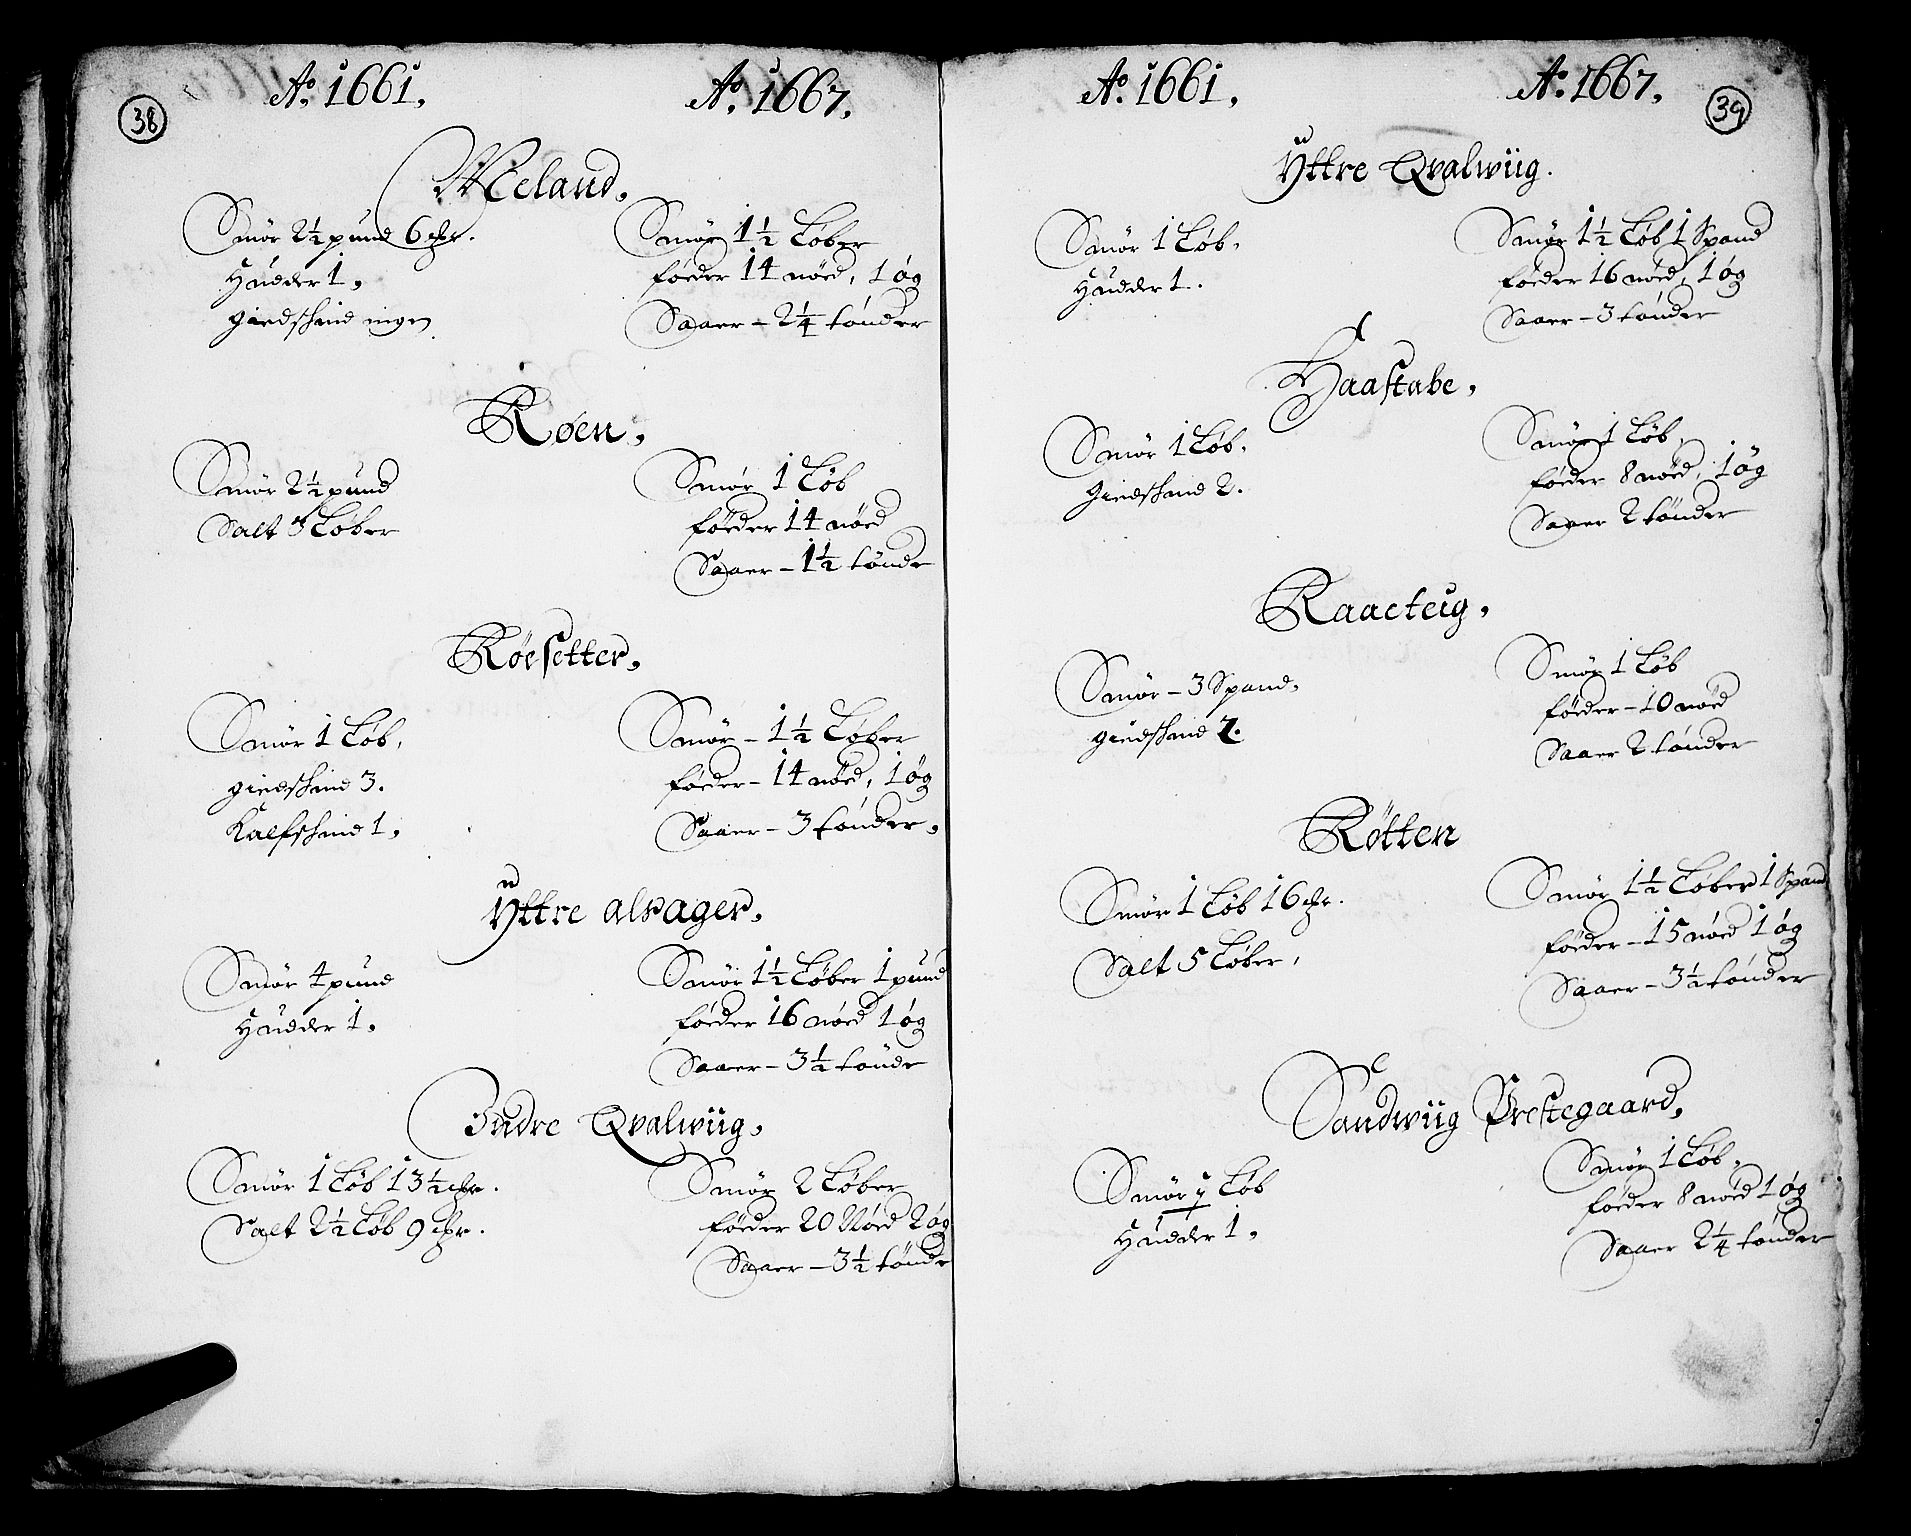 38
Aº. 1661.
Aº. 1667.
Meland.
Smør 2½ pund 6 ꝶr.
Hudder 1.
giedschind ingen
Smør 1½ Løber
føeder 14 nøed, 1 øg
Saaer – 2¼ tønder
Røen.
Smør 2½ pund
Salt 3 Løber
Smør 1 Løb
føeder 14 nøed
Saaer – 1½ tønde
Røesetter.
Smør 1 Løb.
giedschind 3.
Kalfschind 1.
Smør – 1½ Løber
føeder – 14 nøed, 1 øg
Saaer – 3 tønder.
Yttre alsager.
Smør 4 pund
Hudder 1.
Smør 1½ Løber 1 pund
føeder 16 nøed 1 øg
Saaer – 3½ tønde
Indre Qvalwiig.
Smør 1 Løb 13½ ꝶr.
Salt 2½ Løb 9 ꝶr.
Smør 2 Løber
føeder 20 Nøed 2 øg
Saaer – 3½ tønde
39
Aº. 1661.
Aº. 1667.
Yttre Qvalwiig.
Smør 1 Løb.
Hudder 1.
Smør 1½ Løb 1 Spand
føeder 16 nøed, 1 øg
Saaer – 3 tønder
Haastabe.
Smør 1 Løb.
giedschind 2.
Smør 1 Løb.
føeder 8 nøed, 1 øg
Saaer 2 tønder
Raaeteig.
Smør – 3 Spand.
giedschind 2.
Smør 1 Løb
føeder – 10 nøed
Saaer 2 tønder
Røtten
Smør 1 Løb 16 ꝶr.
Salt 5 Løber.
Smør 1½ Løber 1 Spand
føeder – 15 nøed 1 øg
Saaer – 3½ tønder
Sandwiig Prestegaard.
Smør Løb
Hudder 1.
Smør 1 Løb.
føeder 8 nøed 1 øg
Saaer 2¼ tønder